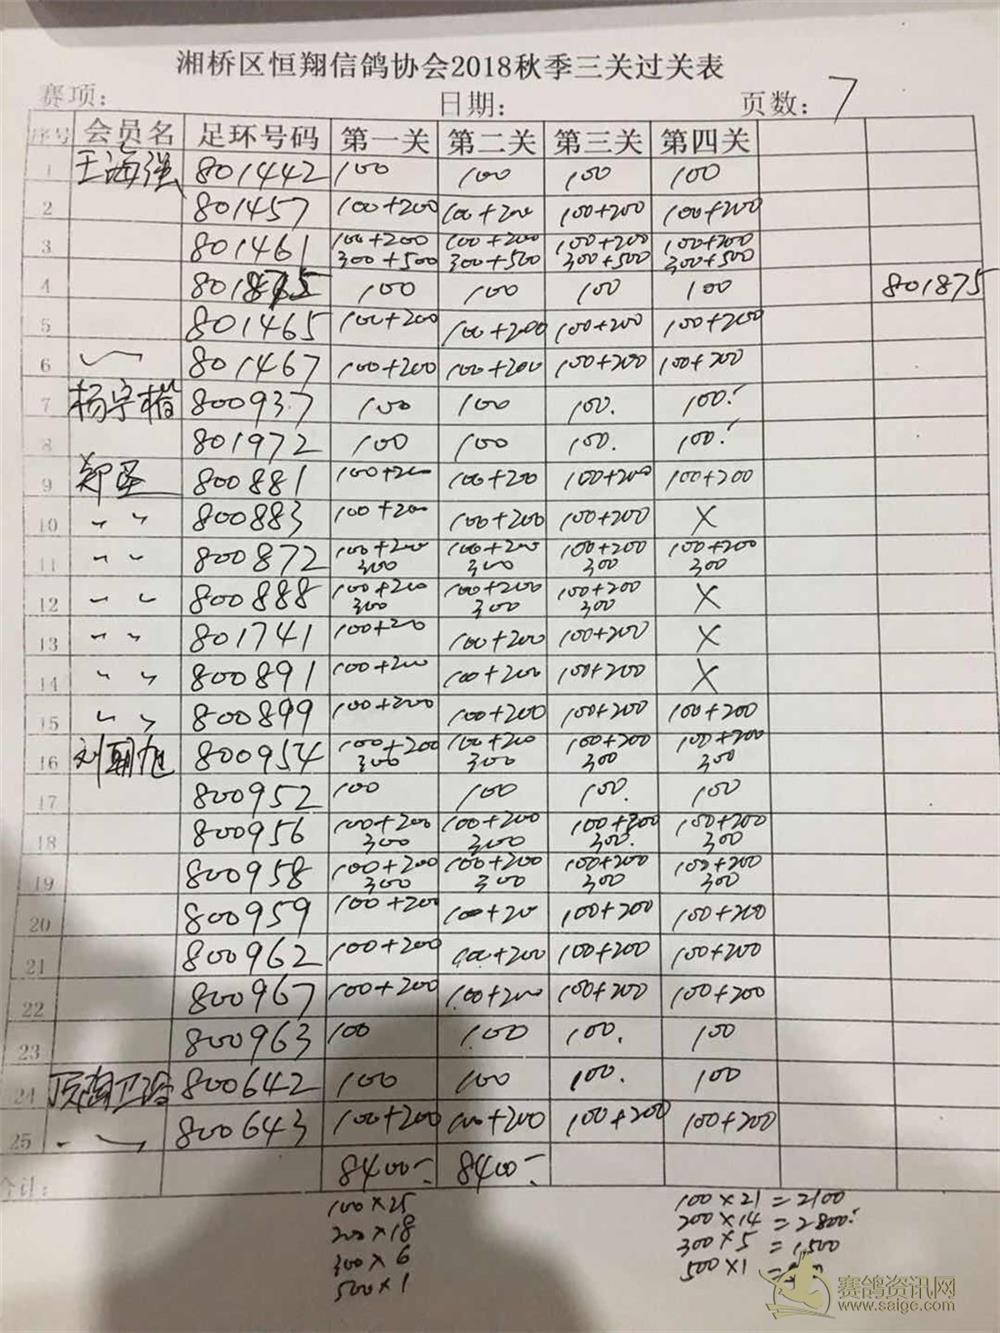 湘桥区恒翔信鸽协会2018秋季三关过关表
赛项: 日期: 页数: 7
序号 会员名 足环号码 第一关 第二关 第三关 第四关
1 王海强 801442 100 100 100 100
2 801457 100+200 100+200 100+200 100+200
3 801461 100+200 300+500 100+200 300+500 100+200 300+500 100+200 300+500
4 801875 100 100 100 100 801875
5 801465 100+200 100+200 100+200 100+200
6 801467 100+200 100+200 100+200 100+200
7 杨宇楷 800937 100 100 100. 100.
8 801972 100 100 100. 100.
9 郑圣 800881 100+200 100+200 100+200 100+200
10 〃 800883 100+200 100+200 100+200 X
11 〃 800872 100+200 300 100+200 300 100+200 300 100+200 300
12 〃 800888 100+200 300 100+200 300 100+200 300 X
13 〃 801741 100+200 100+200 100+200 X
14 〃 800891 100+200 100+200 100+200 X
15 〃 800899 100+200 100+200 100+200 100+200
16 刘朝旭 800954 100+200 300 100+200 300 100+200 300 100+200 300
17 800952 100 100 100. 100
18 800956 100+200 300 100+200 300 100+200 300. 100+200 300
19 800958 100+200 300 100+200 300 100+200 300 100+200 300
20 800959 100+200 100+200 100+200 100+200
21 800962 100+200 100+200 100+200 100+200
22 800967 100+200 100+200 100+200 100+200
23 800963 100 100 100. 100
24 800642 100 100 100. 100
25 800643 100+200 100+200 100+200 100+200
合计: 8400- 8400-
100×25
200×18
300×6
500×1
100×21=2100
200×14=2800
300×5=1500
500×1=
赛鸽资讯网
www.saige.com